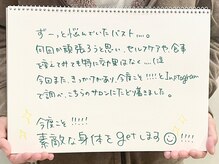 ずーっと悩んでいたバスト…。
何回か頑張ろうと思い、セルフケアや、食事
を変えてみても特に変わり果はなく…(泣
今回また、きっかけがあり、今度こそ!!!!とInstagram
で調べ、こちらのサロンにたどり着きました。
今度こそ!!!!
素敵な身体をgetします!!!!